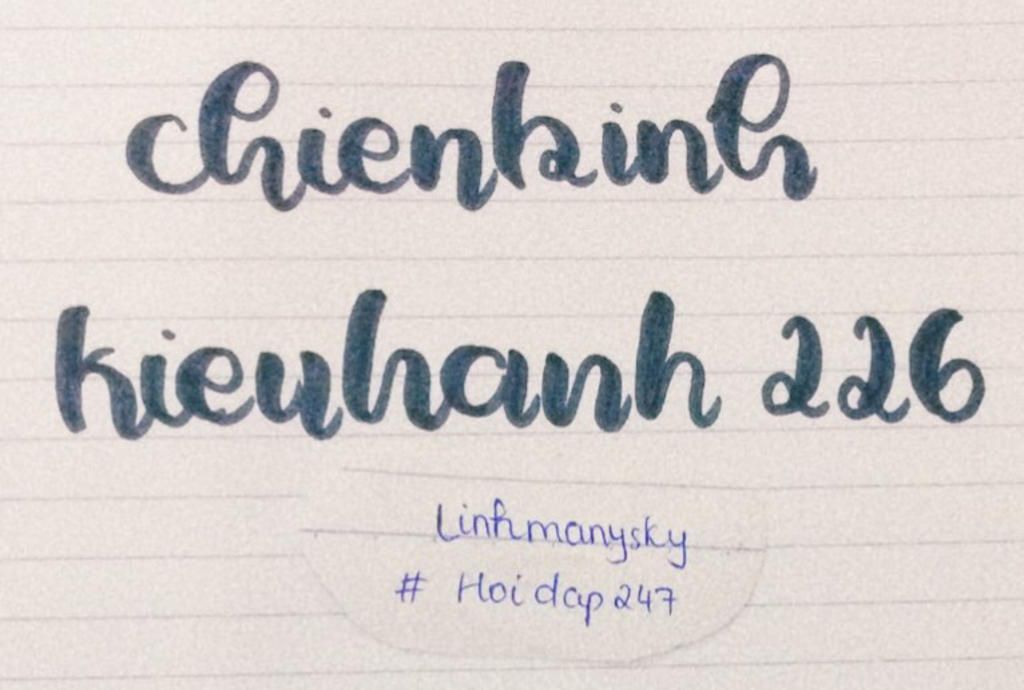 chienbinh
kieuhanh 226
Linhmanysky
# Hoidap247